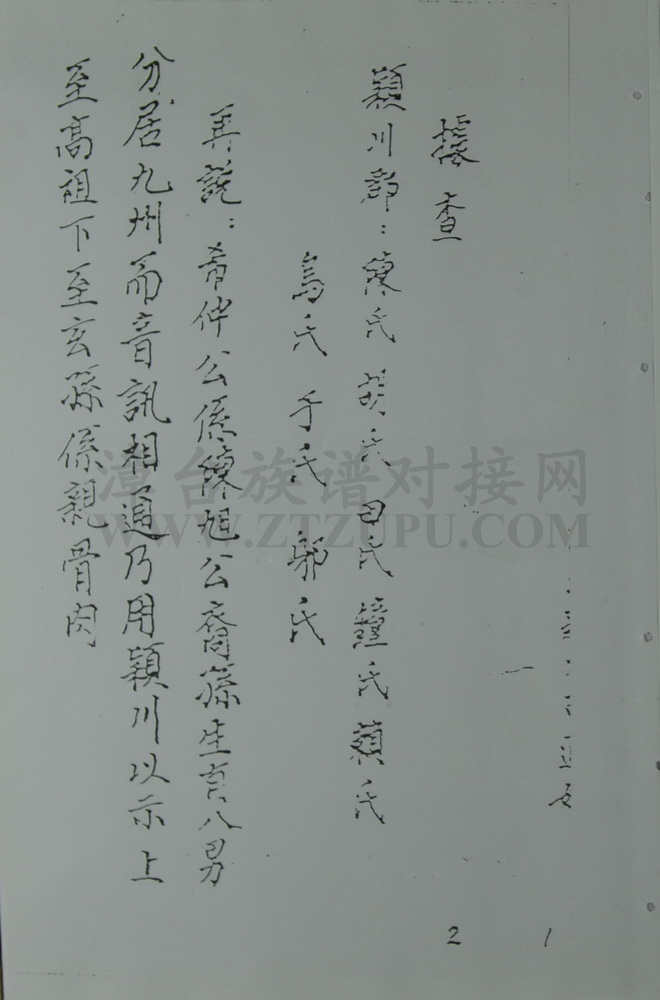 據查
潁川郡：陳氏 胡氏 田氏 鍾氏 賴氏
烏氏 于氏 鄔氏
再說：希仲公係陳旭公裔孫生有八男
分居九州而音訊相通乃用潁川以示上
至高祖下至玄孫係親骨肉
2
1
漳台族谱对接网
WWW.ZTZUPU.COM